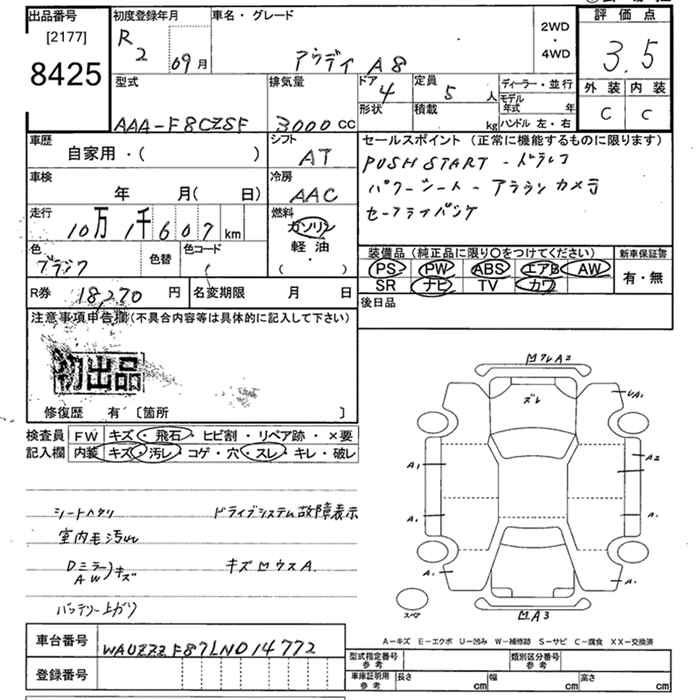 出品番号 初度登録年月 車名・グレード 評価点
[2177] R 2 09月 アウディ A8 2WD・4WD 3.5
8425
型式 排気量 ドア 4 定員 5人 ディーラー・並行 外装 内装
AAA-F8CZSF 3000cc 形状 積載 kg モデル年式 年 ハンドル 左・右 C C
車歴 シフト セールスポイント (正常に機能するものに限ります)
自家用・( ) AT PUSH START - ドラレコ
車検 冷房 パワーシート - アラウンカメラ
年 月( 日) AAC
走行 燃料
10万1千607km ガソリン
色 色替 色コード 軽油
ブラック ( ・ )
装備品 (純正品に限り○をつけてください) 新車保証書
PS PW ABS エアB AW 有・無
SR ナビ TV カワ
R券 18,270円 名変期限 月 日 後日品
注意事項申告欄(不具合内容等は具体的に記入して下さい)
初出品
修復歴 有 〔箇所 〕
検査員 FW キズ・飛石・ヒビ割・リペア跡・×要
記入欄 内装 キズ・汚レ・コゲ・穴・スレ・キレ・破レ
シートヘタリ ドライブシステム故障表示
室内毛汚レ
Dミラー AW)キズ キズ凹ウスA.
バッテリー上がり
凹ワレA2
ズレ
A1 A2
A1 A.
A. A.
スペア 凹A3
A-キズ E-エクボ U-凹み W-補修跡 S-サビ C-腐食 XX-交換済
車台番号 WAUZZZF87LN014772
登録番号
型式指定番号 参考 類別区分番号 参考
車庫証明用 参考 長さ cm 幅 cm 高さ cm